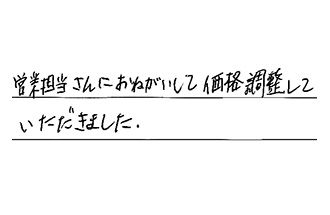 営業担当さんにおねがいして価格調整して
いただきました.